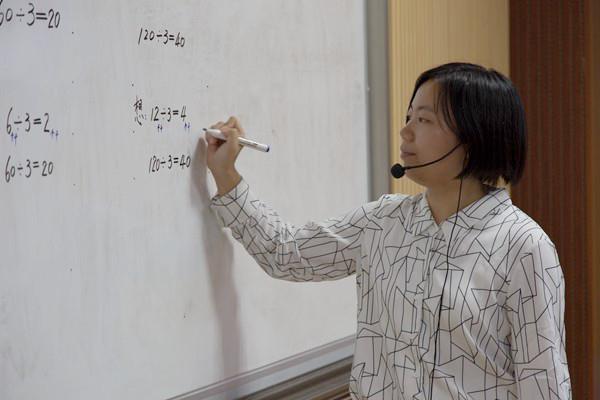 60÷3=20
6÷3=2
60÷3=20
120÷3=40
想:12÷3=4
120÷3=40